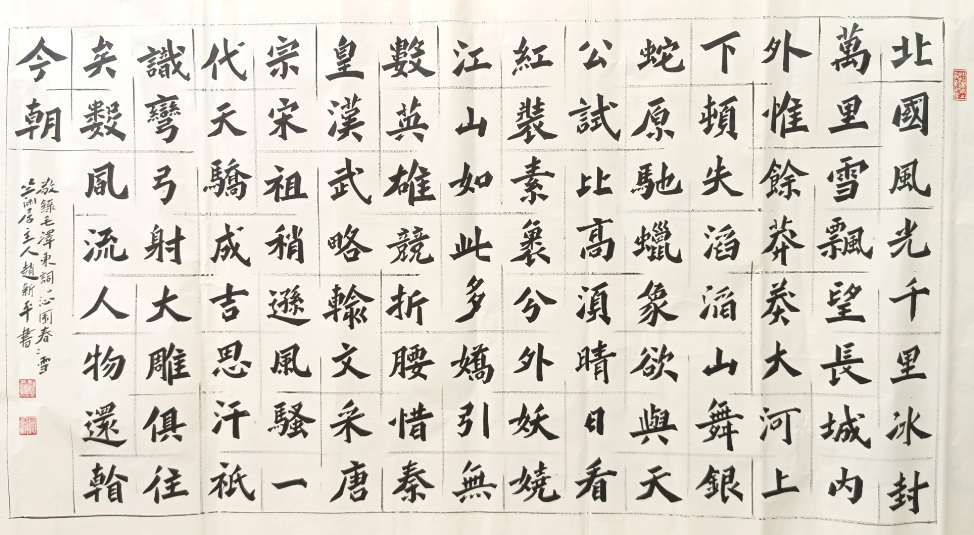 北國風光千里冰封
萬里雪飄望長城內
外惟餘莽莽大河上
下頓失滔滔山舞銀
蛇原馳蠟象欲與天
公試比高須晴日看
紅裝素裹分外妖嬈
江山如此多嬌引無
數英雄競折腰惜秦
皇漢武略輸文采唐
宗宋祖稍遜風騷一
代天驕成吉思汗祇
識彎弓射大雕俱往
矣數風流人物還看
今朝
敬錄毛澤東詞沁園春:雪
居主人趙新平書